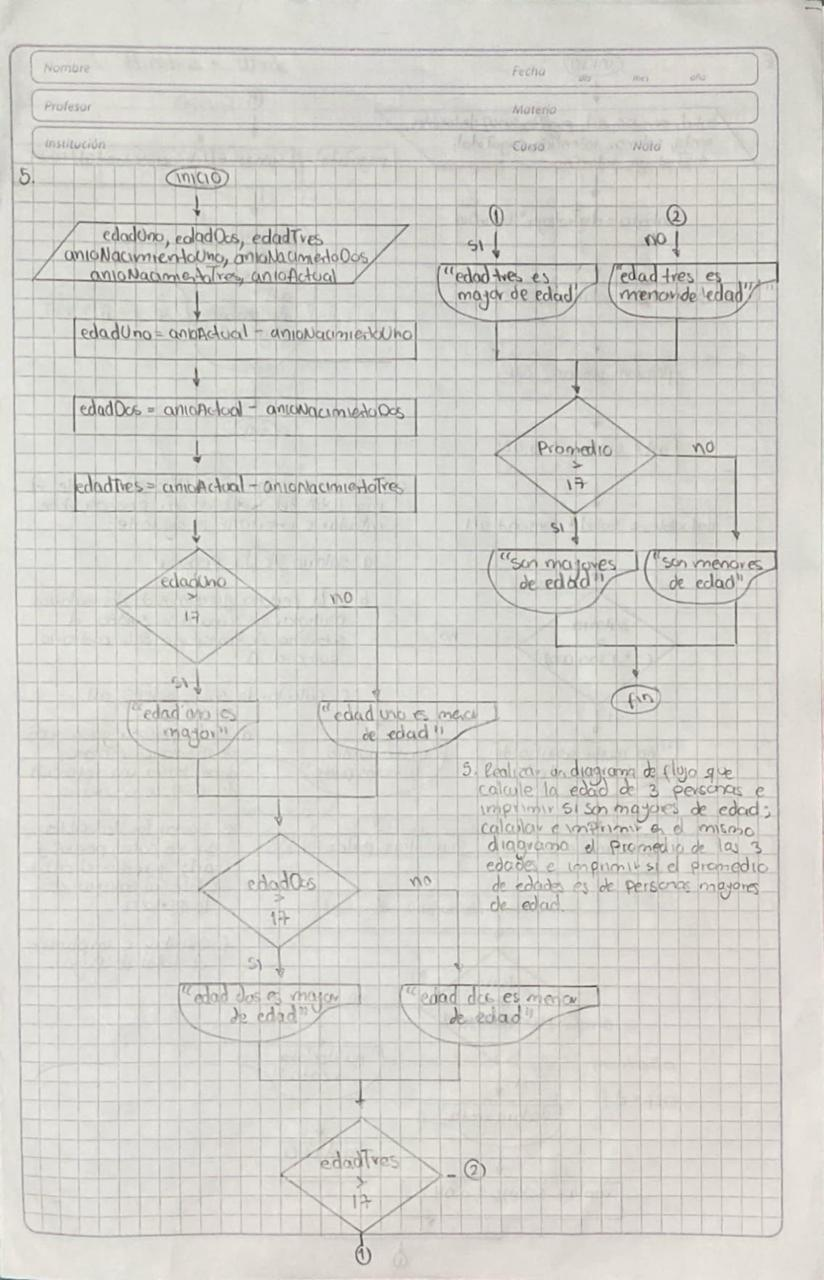 Nombre
Fecha
día mes año
Profesor
Materia
Institución
Curso Nota
5.
INICIO
edadUno, edadDos, edadTres
anioNacimientoUno, anioNacimientoDos
anioNacimientoTres, anioActual
edadUno = anioActual - anioNacimientoUno
edadDos = anioActual - anioNacimientoDos
edadTres = anioActual - anioNacimientoTres
edadUno
>
17
no
SI
"edad uno es
mayor"
"edad uno es menor
de edad"
edadDos
>
17
no
SI
"edad dos es mayor
de edad"
"edad dos es menor
de edad"
edadTres
>
17
2
1
1
2
SI
no
"edad tres es
mayor de edad"
"edad tres es
menor de edad"
Promedio
>
17
no
SI
"son mayores
de edad"
"son menores
de edad"
fin
5. Realizar un diagrama de flujo que
calcule la edad de 3 personas e
imprimir si son mayores de edad;
calcular e imprimir en el mismo
diagrama el promedio de las 3
edades e imprimir si el promedio
de edades es de personas mayores
de edad.